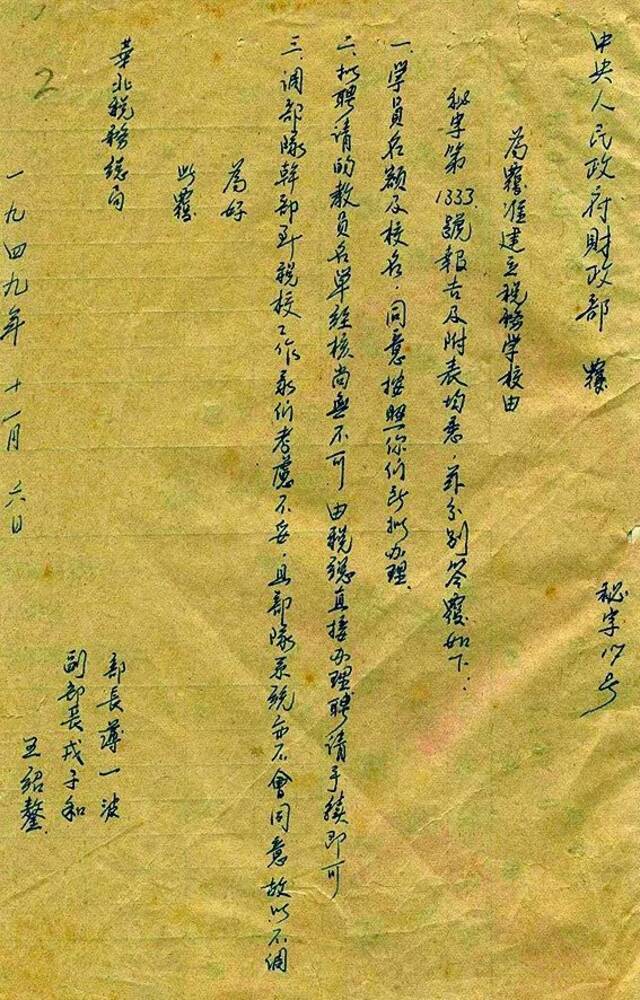 中央人民政府財政部 覆
秘字17号
為覆准建立税務学校由
秘字第1333號報告及附表均悉，茲分别答覆如下：
一、学員名額及校名，同意按照你们所拟办理。
二、拟聘请的教員名单經核尚無不可，由税總直接办理聘请手續即可
三、调部隊幹部到税校工作，我们考慮不妥，且部隊系統亦不會同意，故以不调
為好
此覆
華北税務總局
部長 薄一波
副部長 戎子和
王紹鏊
一九四九年十一月六日
2